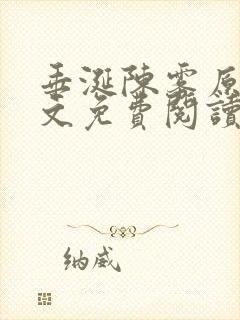 垂涎陳雾原
文免費閱讀
纳威